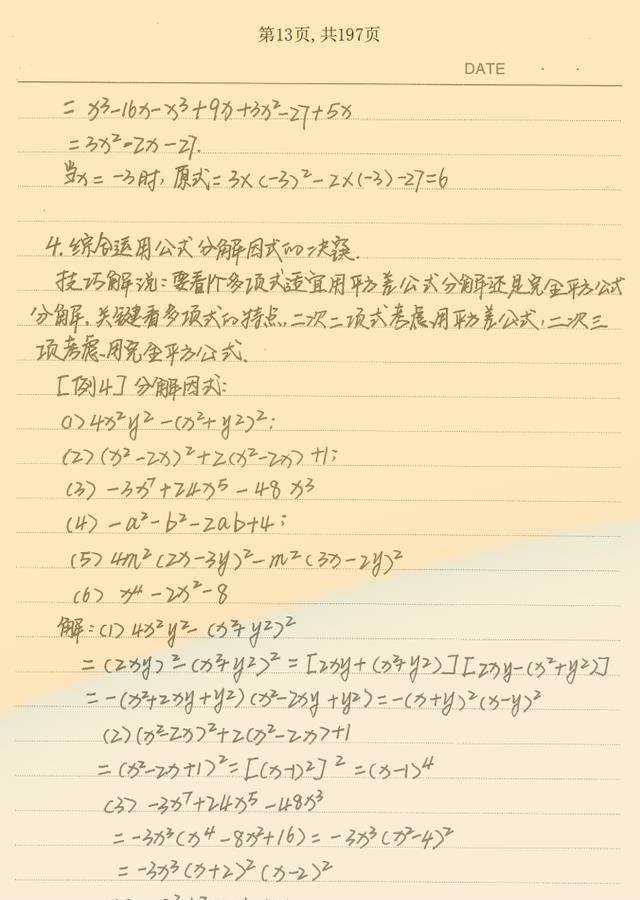 第13页,共197页
DATE · ·
= x³-16x-x³+9x+3x²-27+5x
=3x²-2x-27.
当x=-3时,原式=3×(-3)²-2×(-3)-27=6
4.综合运用公式分解因式的决窍.
技巧解说:要看1个多项式适宜用平方差公式分解还是完全平方公式
分解,关键看多项式的特点,二次二项式考虑用平方差公式,二次三
项考虑用完全平方公式.
[例4]分解因式:
(1)4x²y²-(x²+y²)²;
(2)(x²-2x)²+2(x²-2x)+1;
(3) -3x⁷+24x⁵-48x³
(4) -a²-b²-2ab+4;
(5) 4m²(2x-3y)²-m²(3x-2y)²
(6) x⁴-2x²-8
解:(1) 4x²y²-(x²+y²)²
=(2xy)²-(x²+y²)²=[2xy+(x²+y²)][2xy-(x²+y²)]
=-(x²+2xy+y²)(x²-2xy+y²)=-(x+y)²(x-y)²
(2)(x²-2x)²+2(x²-2x)+1
=(x²-2x+1)²=[(x-1)²]²=(x-1)⁴
(3) -3x⁷+24x⁵-48x³
=-3x³(x⁴-8x²+16)=-3x³(x²-4)²
=-3x³(x+2)²(x-2)²